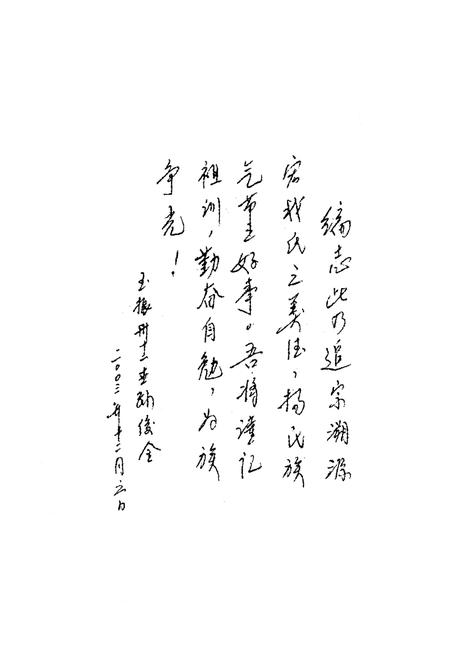 编志此乃追宗溯源
宏我氏之美德、扬民族
气节之好事。吾将谨记
祖训，勤奋自勉，为族
争光！
玉振卅十二世孙俊全
二〇〇三年十二月六日